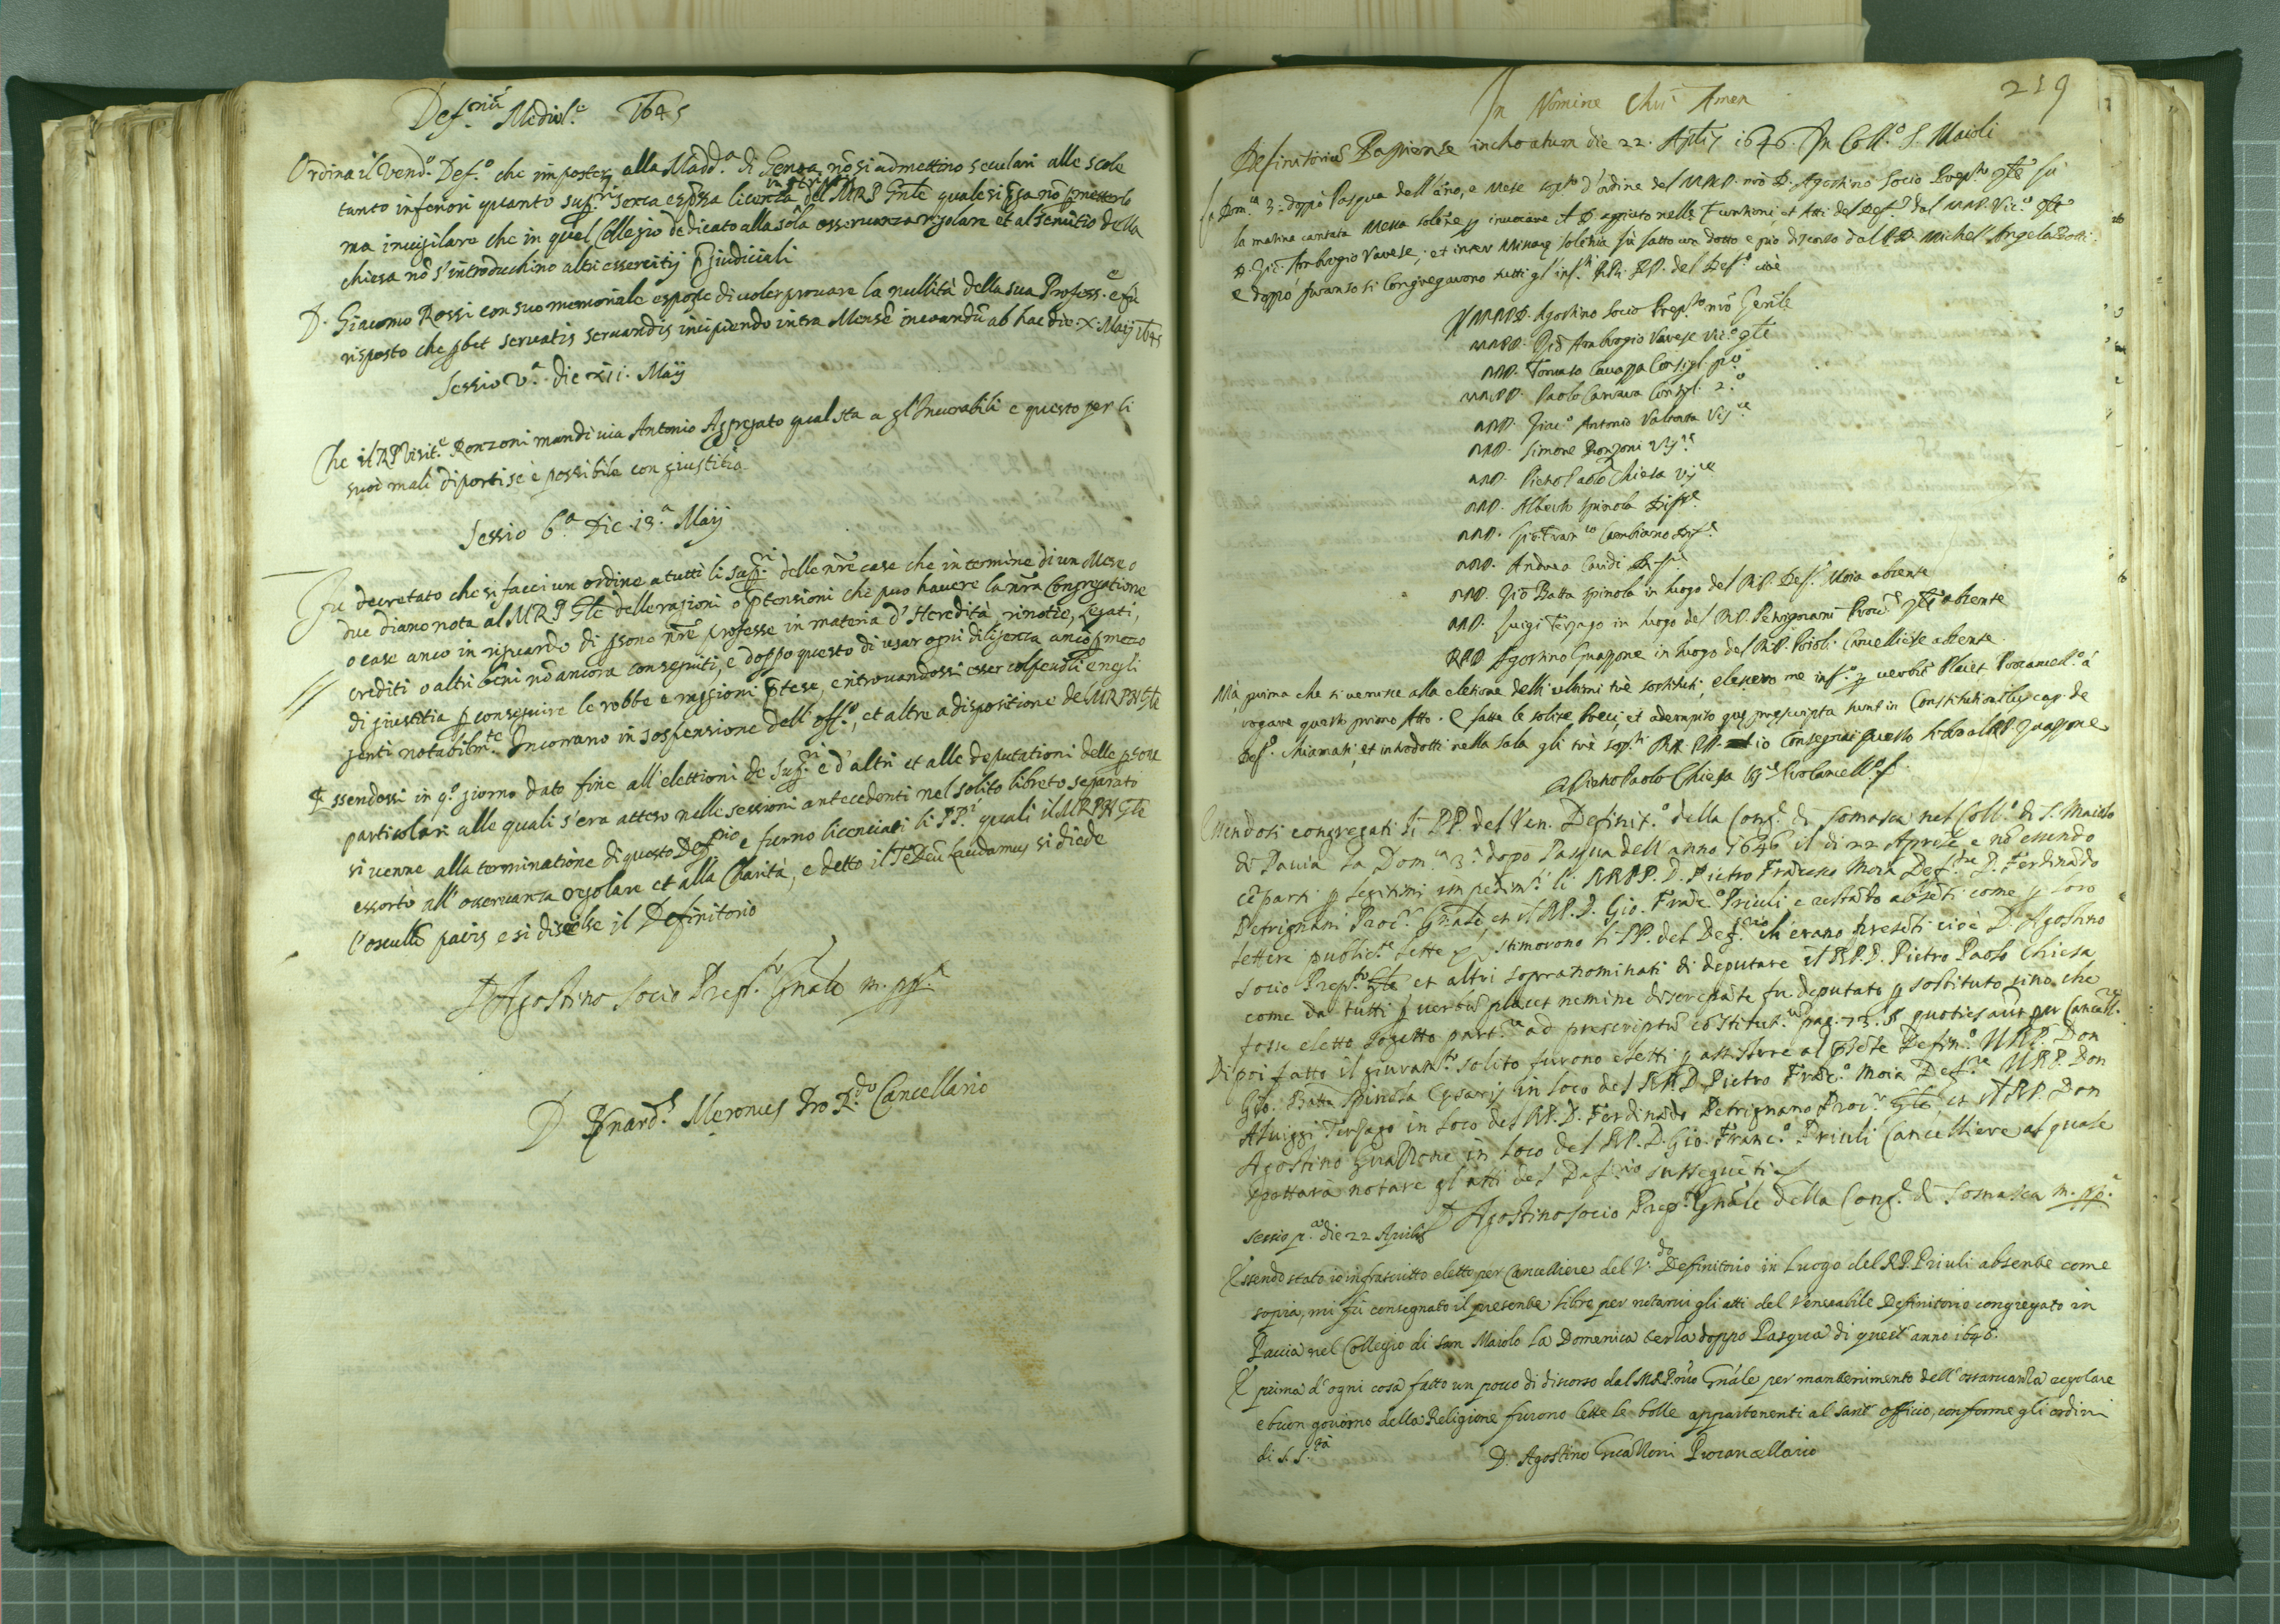 Def.oriu Mediol.e 1645
Ordina il Vend.o Def.o che in poster alla Madd.a di Genoa nō si admettino seculari alle scole
tanto inferiori quanto sup.ri senza esp̄ssa licenza in scriptis del M R P Gn̄le quale si p̄ga nō p̄metterlo
ma invigilare che in quel Collegio dedicato alla sola osservanza regolare et al servitio della
chiesa nō s'introduchino altri essercitij p̄giudiciali
D. Giacomo Rossi con suo memoriale espose di voler provare la nullità della sua Profess.e e fu
risposto che p̄bet servatis servandis incipiendo intra Mensē incoandū ab hac die X. Maij 1645
Sessio V.a die xii. Maij
Che il R P Visit.e Ronzoni mandi via Antonio Aggregato qual sta a gl'Incurabili e questo per li
suoi mali diporti se è possibile con giustitia
Sessio 6.a Die 13.a Maij
Fu decretato che si facci un ordine a tutti li Sup.ri delle nr̄e case che in termine di un Mese o
due diano nota al M R P Gle delle ragioni o p̄tensioni che può havere la nr̄a Congregatione
o case anco in riguardo di p̄sone nr̄e professe in materia d'Heredità, rinotie, Legati,
crediti o altri beni nō ancora conseguiti, e doppo questo di usar ogni diligenza anco p̄ mezo
di giustitia p̄ conseguire le robbe e ragioni p̄tese, e ritrovandossi esser colpevoli e negli
genti notabilm.te Incorrano in sospensione dell'off.o, et altre a dispositione del M R P N Gle
Essendossi in q.o giorno dato fine all'elettioni de Sup.ri e d'altri et alle deputationi delle p̄sone
particolari alle quali s'era atteso nelle sessioni antecedenti nel solito libreto separato
si venne alla terminatione di questo Def.rio e furno licentiati li PP.i quali il M R P N Gle
essortò all'osservanza regolare et alla Charità, e detto il Te Deū Laudamus si diede
l'osculū pacis e si disciolse il Definitorio
D Agostino Socio Prep.to Gn̄ale m. pp.a
D Bnard.s Meronus Pro R.do Cancellario
219
In Nomine Chri Amen
Definitoriū Papiense inchoatum die 22. Aplis 1646. In Coll.o S. Maioli
La Dom.ca 3.a doppo Pasqua dell'āno, e Mese sopto d'ordine del M.R.P. nro D. Agostino Socio Prep.to Gle fù
la matina cantata Messa solēne p invocare il D. aggiuto nelle Funtioni, et Atti del Def.o dal M.R.P. Vic.o Gle
D. Gio. Ambrogio Varese; et inter Missarū solēnia fù fatto un dotto e pio discorso dal P. D. Michel Angelo Botti:
e doppo pranso si Congregarono tutti gl'inf.ti RR. PP. del Def.o cioè
Il M.R.P.D. Agostino Socio Prep.to nrō Genle
M.R.P.D. Gio Ambrogio Varese Vic.o Gle
M.R.P. Tomaso Cavazza Consigl. p.o
M.R.P.D. Paolo Carrara Consigl. 2.o
M.R.P. Giac.o Antonio Valtorta Vis.re
M.R.P. Simone Ronzoni Vis.re
M.R.P. Pietro Paolo Chiesa Vis.re
M.R.P. Alberto Spinola Diff.re
M.R.P. Gio: Fran.co Cambiano Def.e
M.R.P. Andrea Cavidi Def.e
M.R.P. Gio Batta Spinola in luogo del R.P. Def.e Moia absente
M.R.P. Luigi Tersago in luogo del R.P. Petrignani Proc.e Gle absente
R.P.D Agostino Guazzone in luogo del R.P. Prioli Cancelliere absente
Mà, prima che si venisse alla eletione delli ultimi trè sostituti, elessero me inf.o p verbū Placet Procancell.o à
rogare questo primo Atto. E fatte le solite Preci, et adempito quę pręscripta sunt in Constitutionibus cap. de
Def.o Chiamati, et introdotti nella sala gli trè sopti RR. PP. io Consegnai questo libro al R.P. Guazzone
D Pietro Paolo Chiesa Vis.e Procancell.o
Essendosi congregati li PP. del Ven. Definit.o della Cong.e di Somasca nel Coll.o di S. Maiolo
di Pavia la Dom.ca 3.a dopo Pasqua dell'anno 1646 il di 22 Aprile, e nō essendo
cōparti p legitimi impedim.ti li RR.PP. D. Pietro Frāncesco Moia Def.re D. Ferdinādo
Petrignani Proc.r Gn̄ale, et il R.P. D. Gio. Frāc.o Priuli e restādo absēti come p loro
lettere public.te lette stimorono li PP. del Def.rio ch'erano presēti cioè D. Agostino
Socio Prep.to Gle et altri sopranominati di deputare il R.P.D. Pietro Paolo Chiesa
come da tutti p verbū placet nemine discrepāte fu deputato p sostituto sino che
fosse eletto sogetto part.re ad prescriptū cōstitut.um pag. 73. § quoties aut per Cancell.
Di poi fatto il giuram.to solito furono eletti p assistere al p̄sēte Defin.o Il R.P. Don
Gio. Batta Spinola Cęsarij in loco del R.P.D. Pietro Frāc.o Moia Def.re Il R.P. Don
Aluiggi Tersago in loco del R.P. D. Ferdinādo Petrignano Proc.r Gle, et il R.P. Don
Agostino Guazzone in loco del R.P. D. Gio. Franc.o Priuli Cancelliere al quale
spettarà notare gl'atti del Def.rio susseguēti
D Agostino Socio Prep.to Gn̄ale della Cong.e di Somasca m. pp.a
Sessio p.a die 22 Aprilis
Essendo stato io infrascritto eletto per Cancelliere del V.do Definitorio in Luogo del R.P. Priuli absente come
sopra, mi fù consegnato il presente Libro per notarvi gli atti del Venerabile Definitorio congregato in
Pavia nel Collegio di San Maiolo La Domenica terza doppo Pasqua di quest'anno 1646.
E prima d'ogni cosa fatto un poco di discorso dal M.R.P. nro Gn̄ale per mantenimento dell'osservanza regolare
e buon governo della Religione furono lette le bolle appartenenti al sant'officio, conforme gli ordini
di S. S.tà
D. Agostino Guazzoni Procancellario